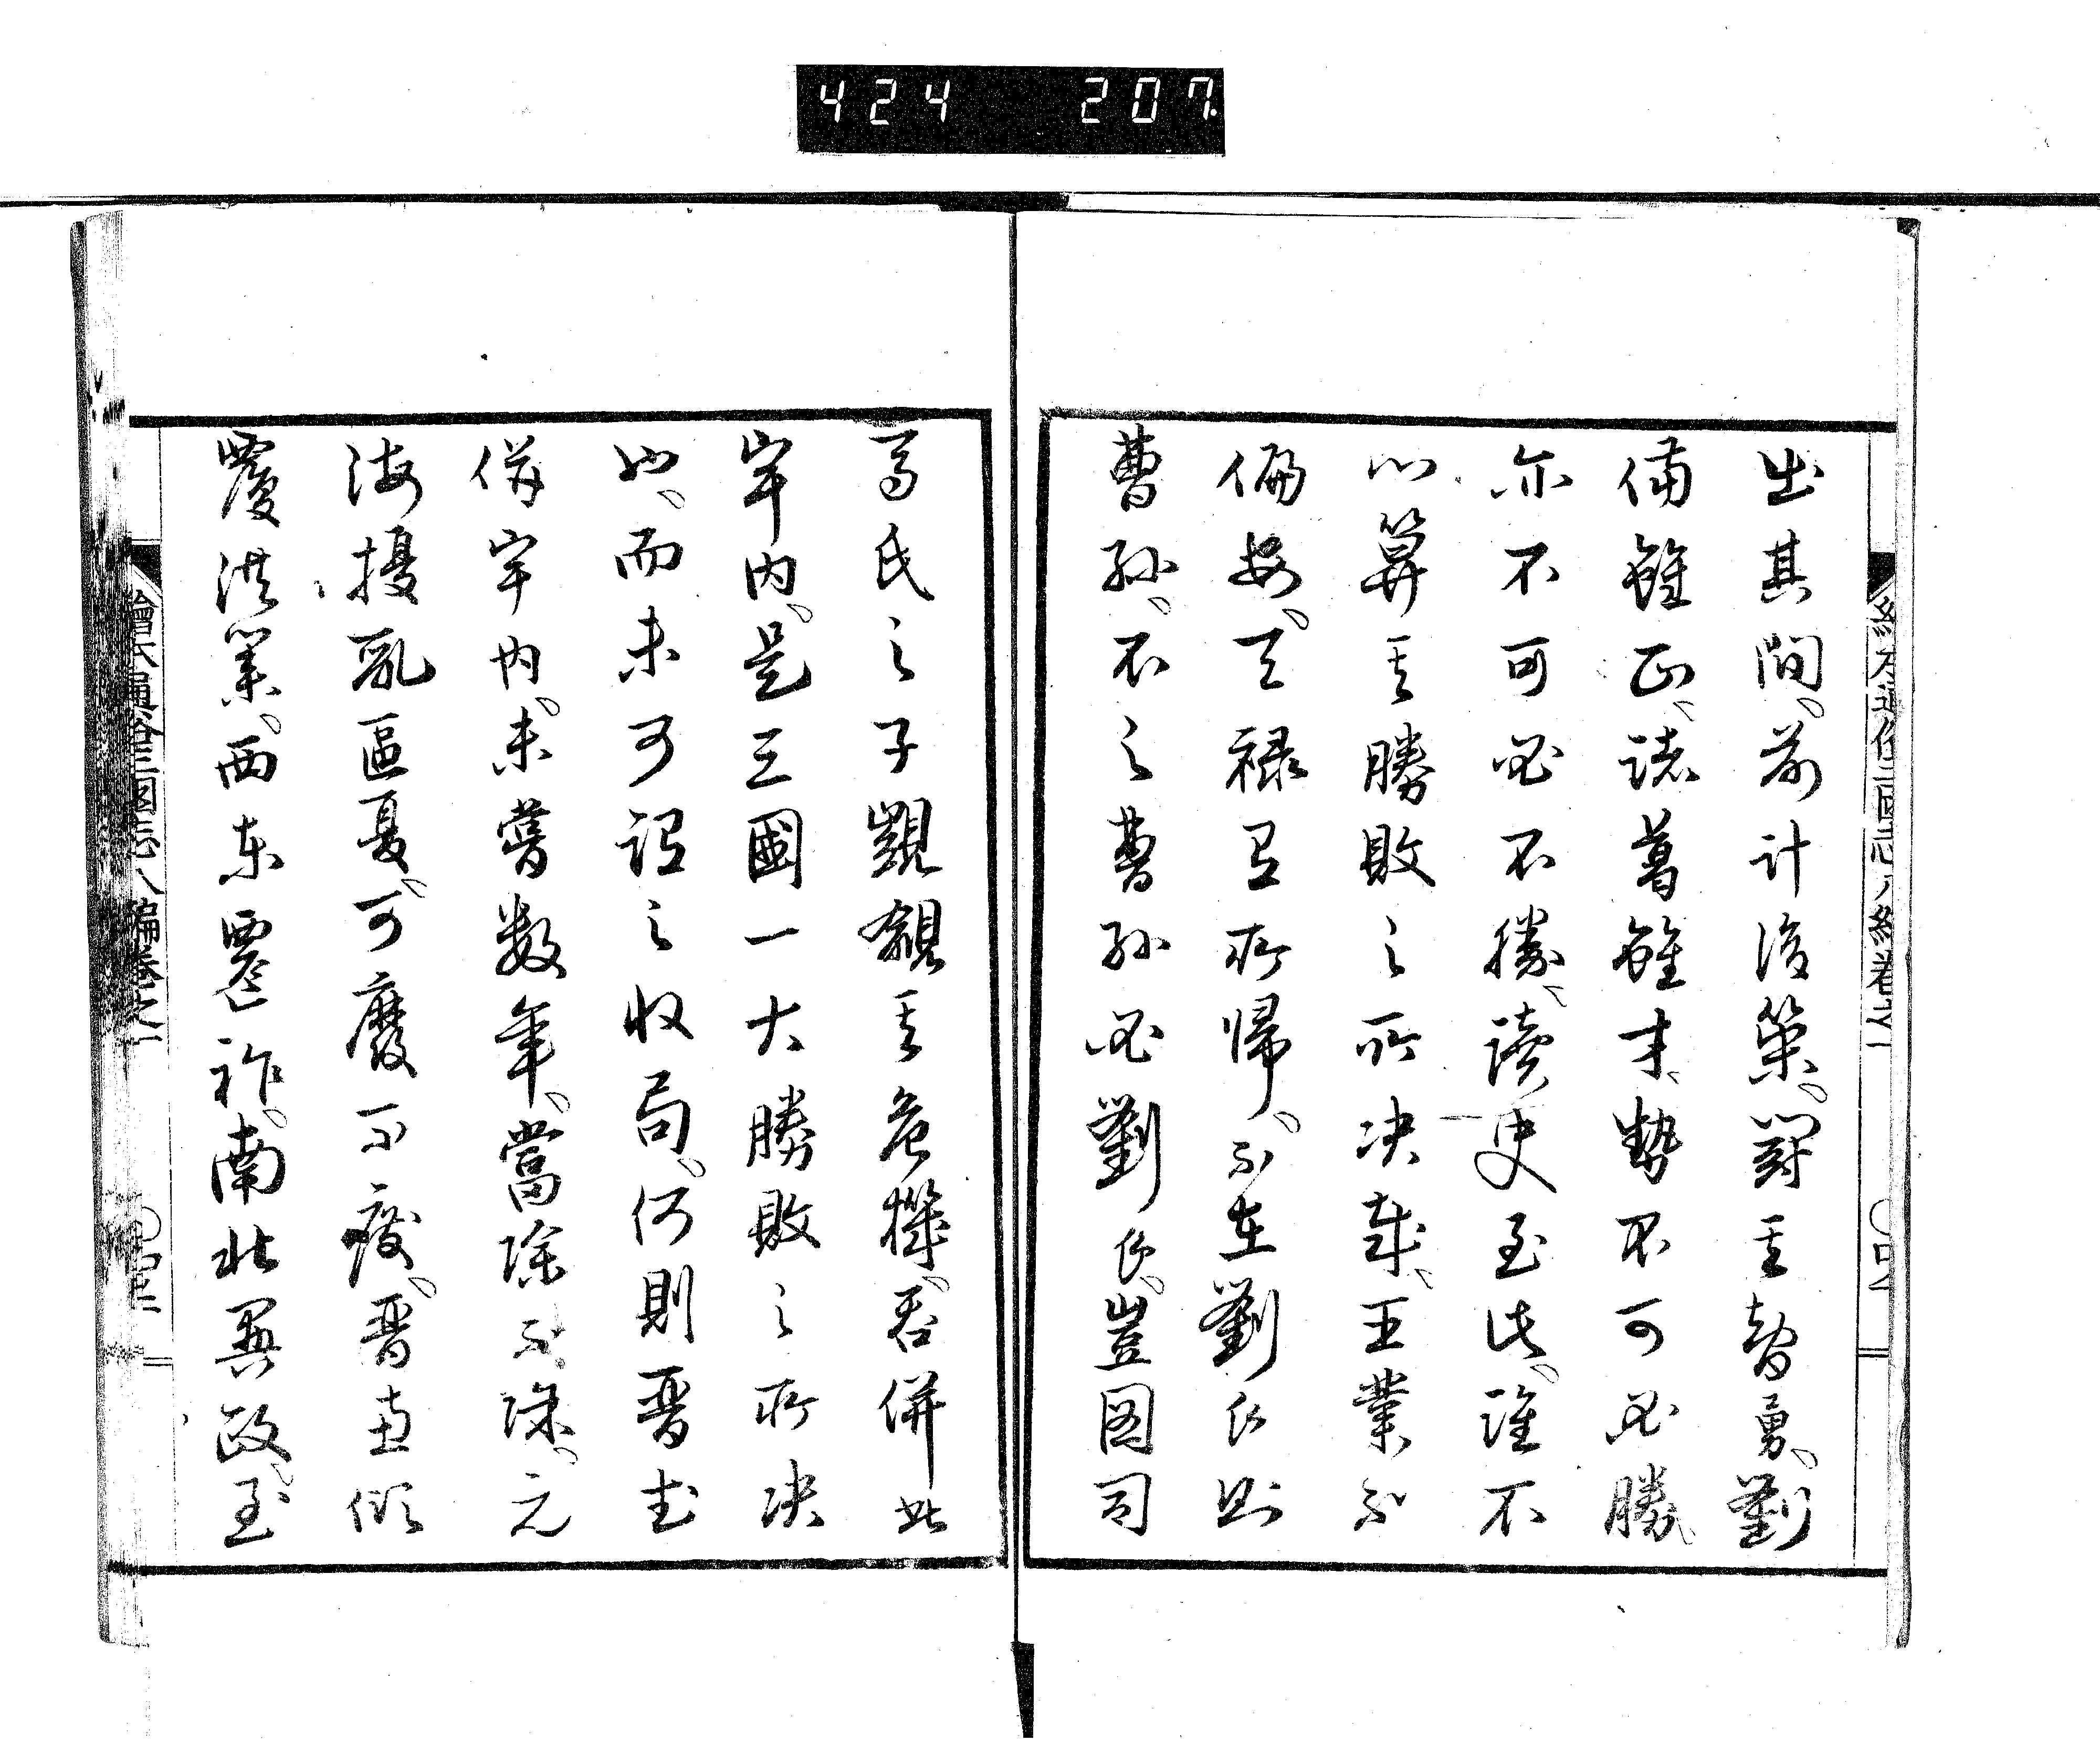 424 207
出其間、前計後策、闘其智勇、劉
備雖正、諸葛雖才、勢不可必勝、
亦不可必不勝、讀史至此、誰不
心算其勝敗之所決哉、王業不
偏安、天禄有所帰、不在劉氏則
曹孫、不之曹孫必劉氏、豈図司
馬氏之子覬覦其危機、呑併此
宇内、是三國一大勝敗之所決
也、而未可認之收局、何則晋武
併宇内、未嘗数年、當除不除、元
海擾乱區夏、可廢不廢、晋恵傾
覆洪業、西東遷祚、南北異政、至
繪本通俗三國志八編巻之一
繪本通俗三國志八編巻之一